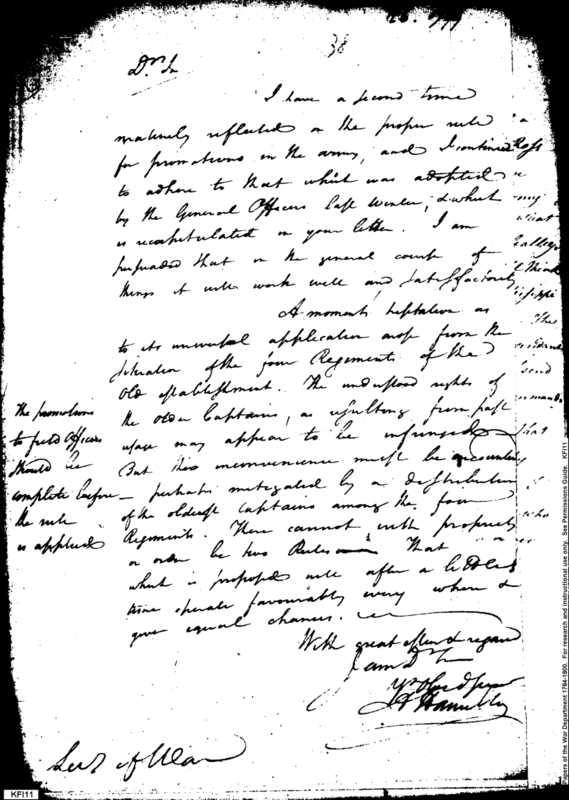 38
Dr Sr
I have a second time
maturely reflected on the proper rule
for promotions in the army, and I continue
to adhere to that which was adopted
by the General Officers last Winter, & which
is recapitulated in your letter. I am
persuaded that in the general course of
things it will work well and satisfactorily
A moments hesitation as
to its universal application arose from the
situation of the four Regiments of the
Old establishment. The understood rights of
the older Captains, as resulting from past
usage may appear to be infringed
But this inconvenience must be encountered
perhaps mitigated by a distribution
of the oldest Captains among the four
Regiments. There cannot with propriety
or order be two Rules That
what is proposed will after a little
time operate favourably every where &
give equal chances.
With great esteem & regard
I am Dr Sr
Yr Obed ser
A Hamilton
Secy of War
The promotions
to field Officers
should be
complete before
the rule
is applied
Papers of the War Department 1784-1800. For research and instructional use only. See Permissions Guide. KFI11
KFI11